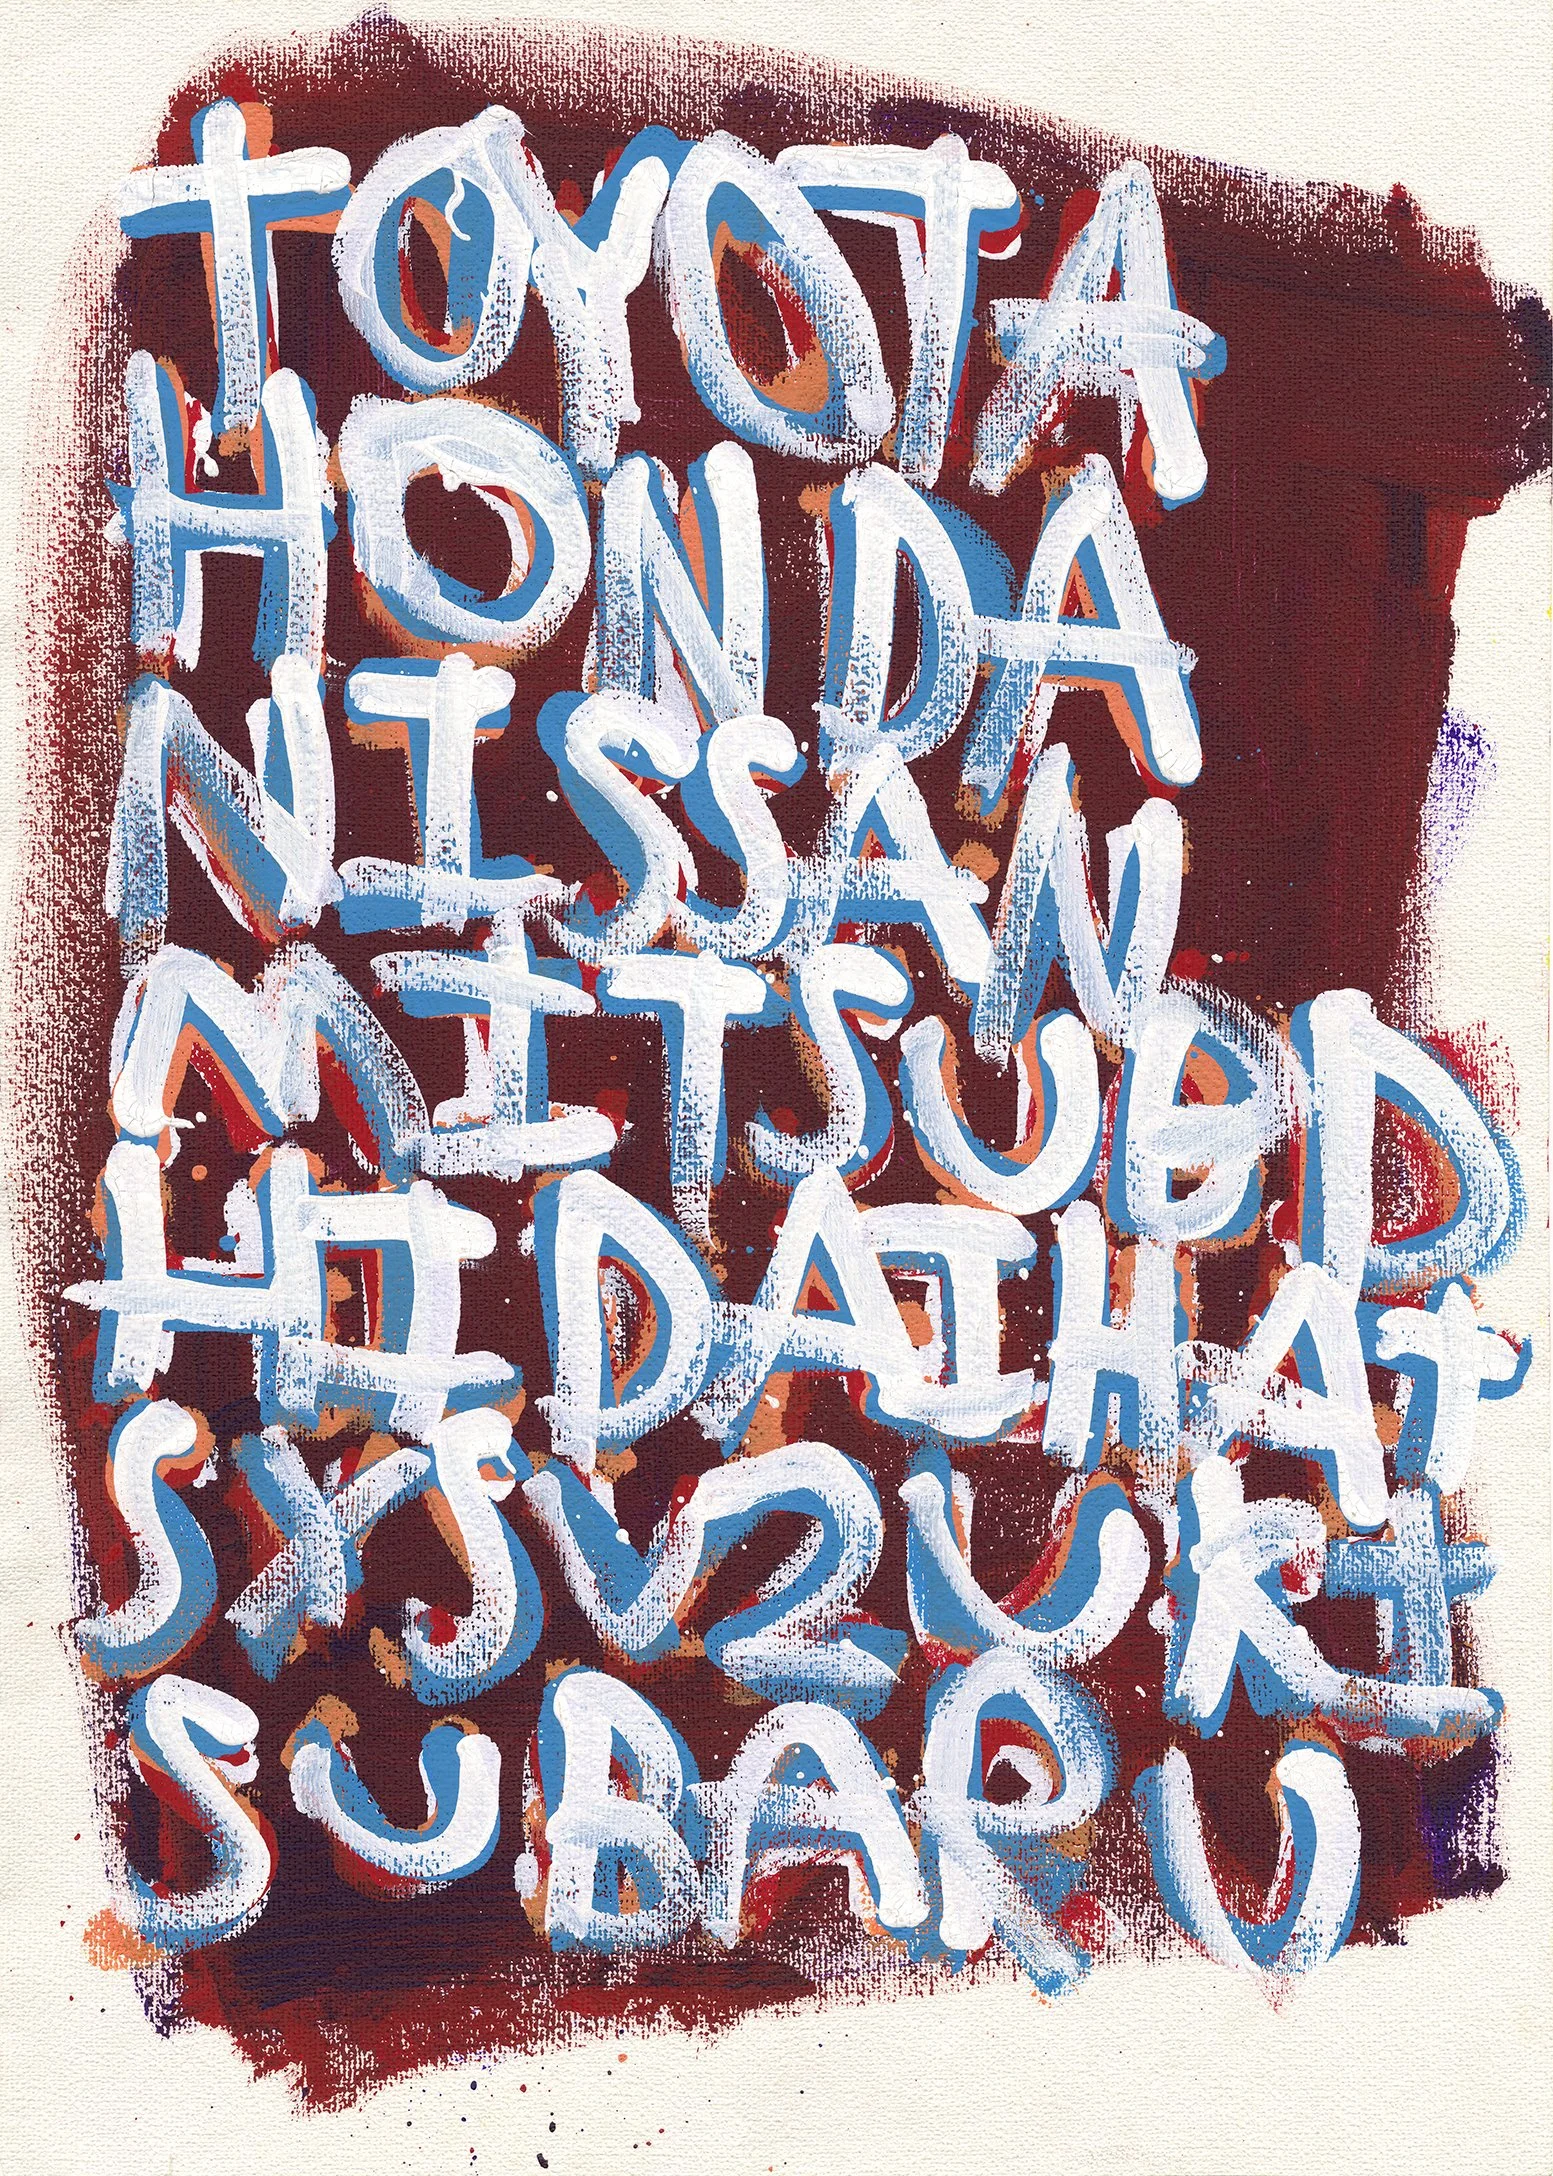 TOYOTA
HONDA
NISSAN
MITSUBD
HI DAIHAT
SXSVZUKI
SUBARU